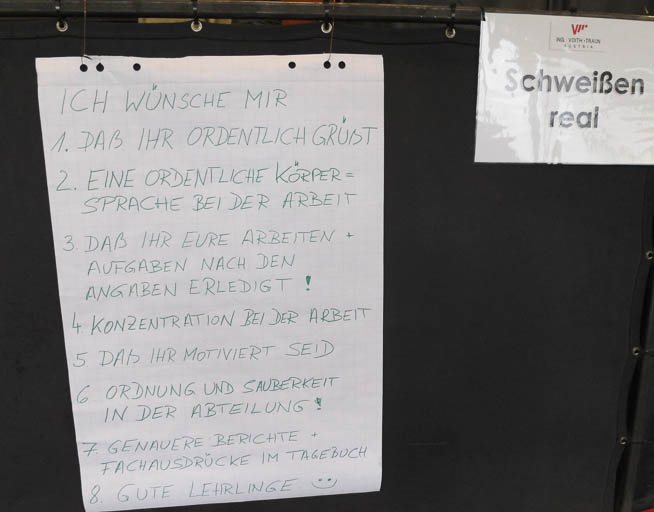 ICH WÜNSCHE MIR
1. DAß IHR ORDENTLICH GRÜßT
2. EINE ORDENTLICHE KÖRPER=
SPRACHE BEI DER ARBEIT
3. DAß IHR EURE ARBEITEN +
AUFGABEN NACH DEN
ANGABEN ERLEDIGT !
4. KONZENTRATION BEI DER ARBEIT
5. DAß IHR MOTIVIERT SEID
6 ORDNUNG UND SAUBERKEIT
IN DER ABTEILUNG !
7. GENAUERE BERICHTE +
FACHAUSDRÜCKE IM TAGEBUCH
8. GUTE LEHRLINGE
ING. VOITH • TRAUN
AUSTRIA
Schweißen
real